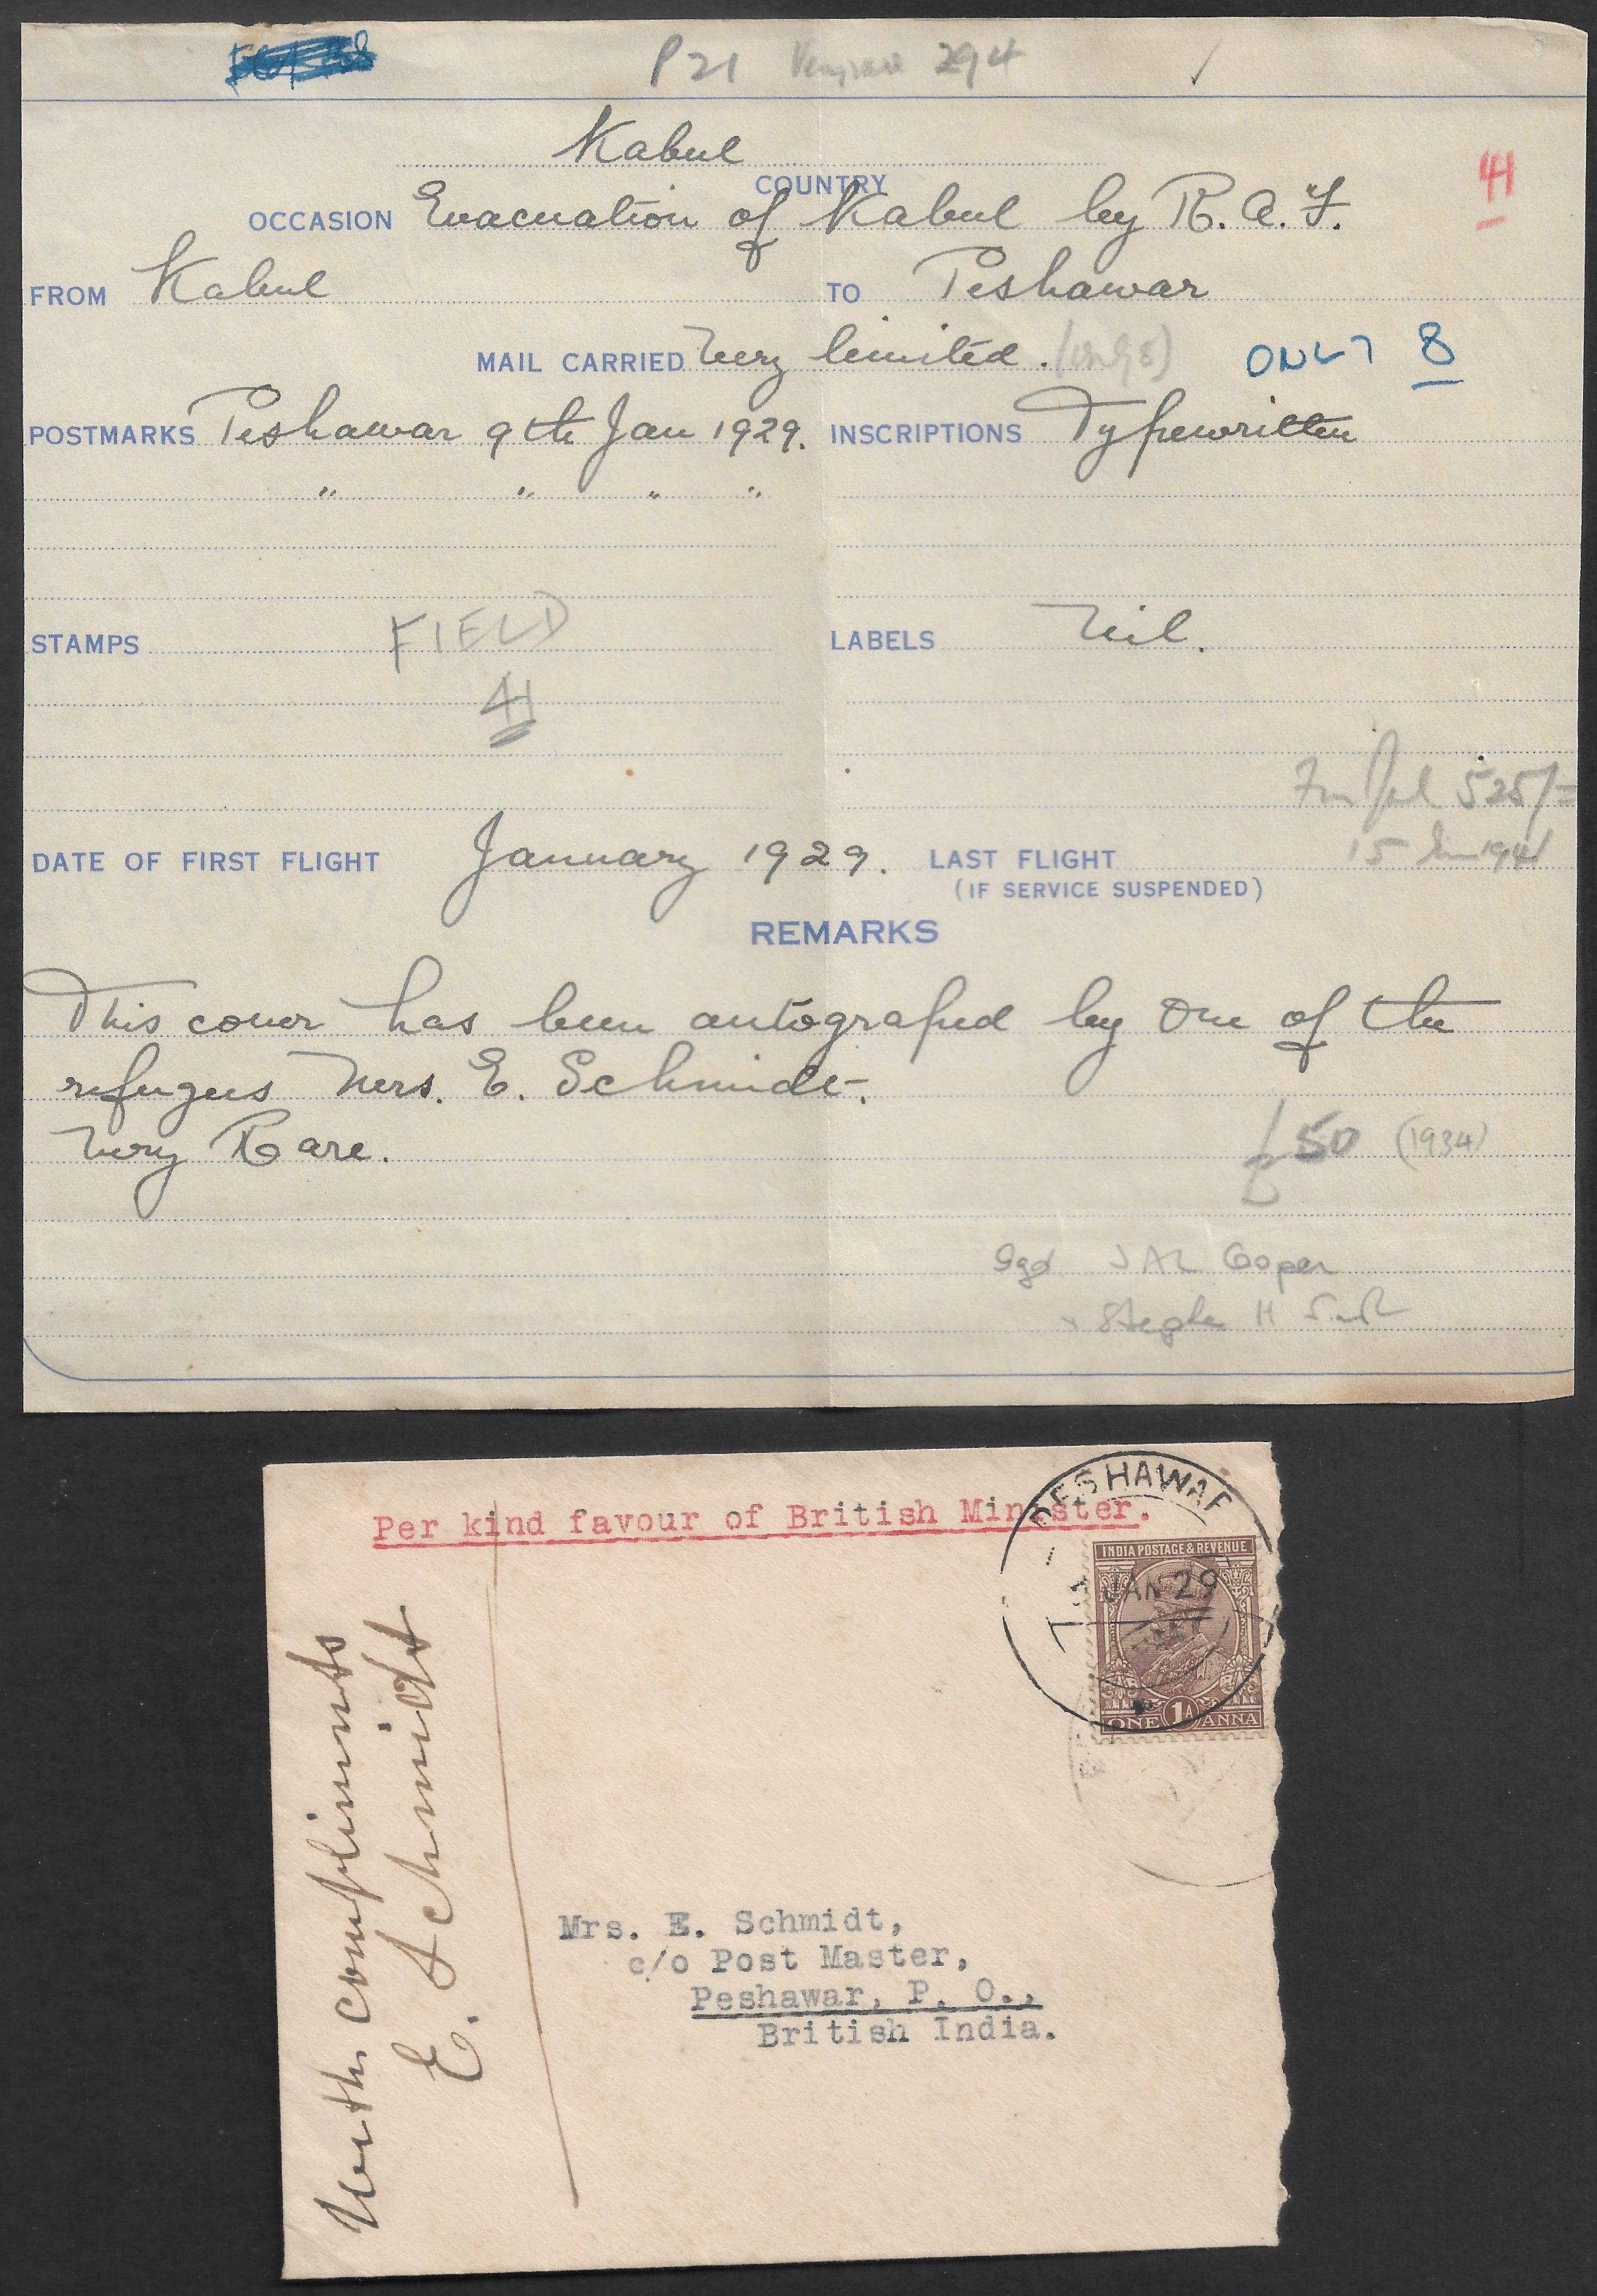 P 21 294
Kabul
COUNTRY
OCCASION Evacuation of Kabul by R.A.F.
41
FROM Kabul TO Peshawar
MAIL CARRIED Very limited. (only 8) ONLY 8
POSTMARKS Peshawar 9th Jan 1929. INSCRIPTIONS Typewritten
" " " "
STAMPS FIELD LABELS Nil.
41
525/=
15 1941
DATE OF FIRST FLIGHT January 1929. LAST FLIGHT
(IF SERVICE SUSPENDED)
REMARKS
This cover has been autografed by one of the
refugees Mrs. E. Schmidt.
Very Rare.
£50 (1934)
Sgd JAL Cooper
+ Stephen H Smith
Per kind favour of British Minister.
PESHAWAR
JAN 29
INDIA POSTAGE & REVENUE
ONE 1A ANNA
With compliments
E. Schmidt
Mrs. E. Schmidt,
c/o Post Master,
Peshawar, P. O.,
British India.